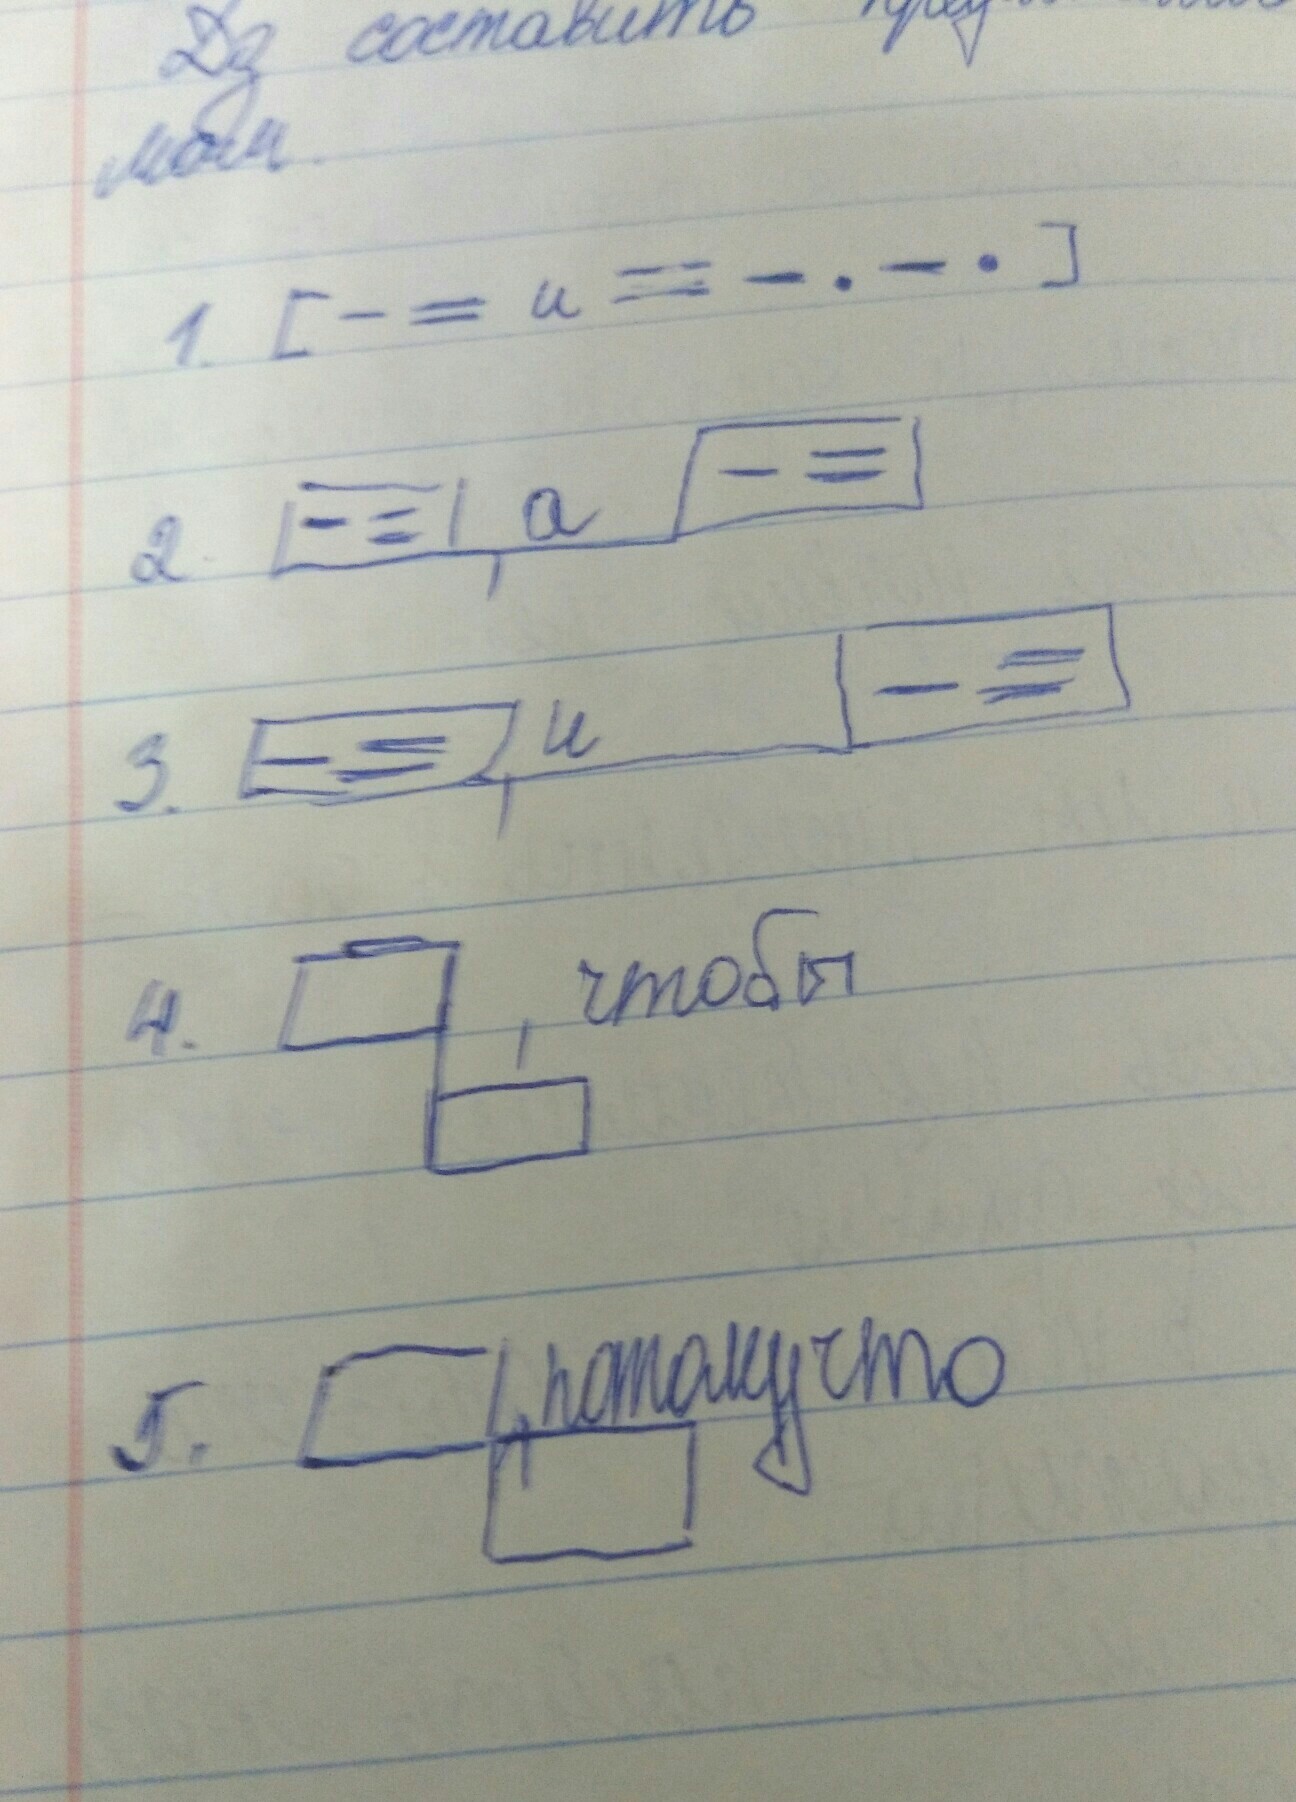 Дз составить
1. [ - = и = = - . - . ]
2. - = , а - =
3. - = , и - =
4. , чтобы
5. , потому что